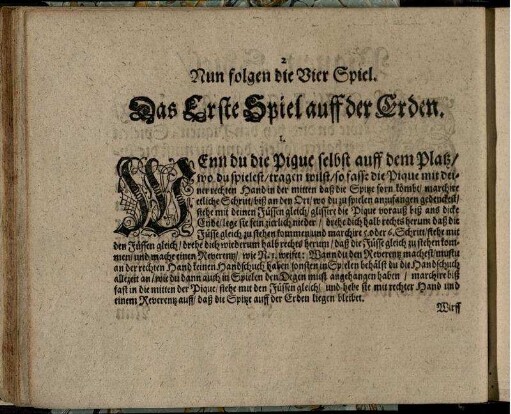 2
Nun folgen die Vier Spiel.
Das Erste Spiel auff der Erden.
1.
WEnn du die Pique selbst auff dem Platz/
wo du spielest/tragen wilst/so fasse die Pique mit dei-
ner rechten Hand in der mitten daß die Spitze forn kömbt/ marchire
etliche Schritt/ biß an den Ort/ wo du zu spielen anzufangen gedenckest/
stehe mit deinen Füssen gleich/ glissire die Pique vorauß biß ans dicke
Ende/ lege sie fein zierlich nieder/ drehe dich halb rechts herum daß die
Füsse gleich zu stehen kommen und marchire 5. oder 6. Schritt/ stehe mit
den Füssen gleich/ drehe dich wiederumb halb rechts herum/ daß die Füsse gleich zu stehen kom-
men/ und mache einen Reverentz/ wie N. 1. weiset: Wann du den Reverentz machest/ mustu
an der rechten Hand keinen Handschuch haben/ sonsten in Spielen behälst du die Handschuch
allezeit an/ wie du dann auch in Spielen den Degen must angehangen haben/ marchire biß
fast in die mitten der Pique/ stehe mit den Füssen gleich/ und hebe sie mit rechter Hand und
einem Reverentz auff/ daß die Spitze auff der Erden liegen bleibet.
Wirff